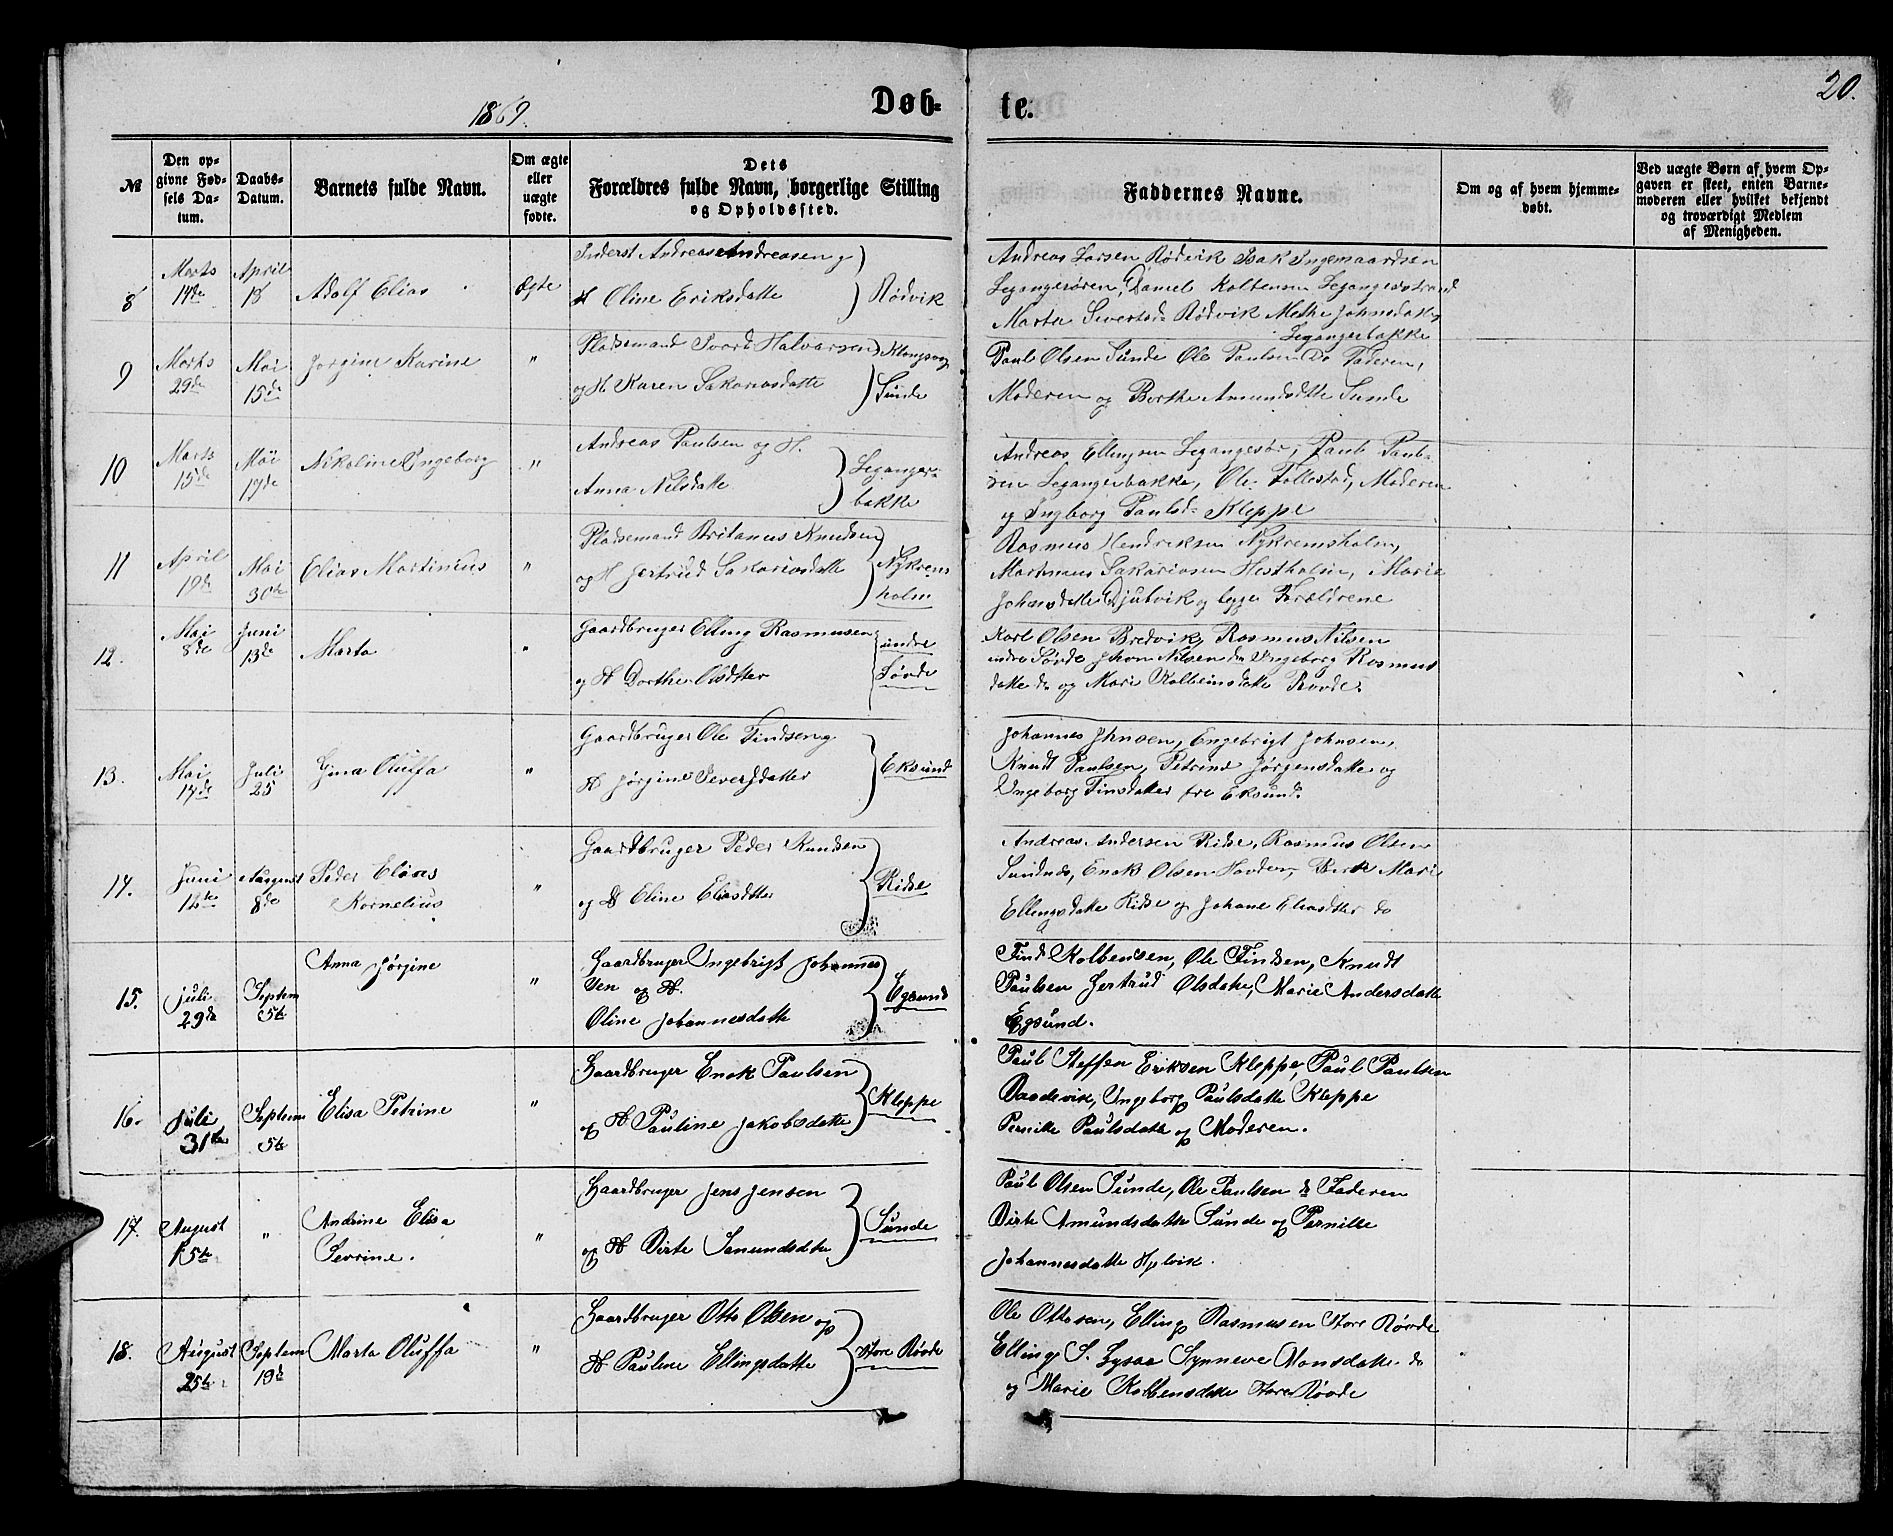 20.
1869.
Døb-
te.
№
Den op-
givne Fød-
sels Da-
tum.
Daabs-
Datum.
Barnets fulde Navn.
Om ægte
eller
uægte
fødte.
Dets
Forældres fulde Navn, borgerlige Stilling
og Opholdssted.
Faddernes Navne.
Om og af hvem hjemme-
døbt.
Ved uægte Børn af hvem Op-
gaven er skeet, enten Barne-
moderen eller hvilket bekjendt
og troværdigt Medlem
af Menigheden.
8
Marts
14de
April
18
Adolf Elias
Ægte
Inderst Andreas Andreasen og
H Oline Eriksdatte
Rødvik
Andreas Larsen Rødvik Isak Ingemaardsen
Legangersøren, Daniel Kolbensen Legangerstrand
Marta Sivertsd. Rødvik Methe Johnsdatte
Legangerbakke
9
Marts
29de
Mai
15de
Jorgine Karine
"
Pladsemand Svord Halvarsen
og H. Karen Sakariasdatte
Sunde
Paul Olsen Sunde Ole Paulsen Do Faderen,
Moderen og Berthe Amundsdtte Sunde
10
Marts
15de
Mai
17de
Nikoline Ingeborg
"
Andreas Paulsen og H.
Anna Nilsdatte
Leganger-
bakke
Andreas Ellingsen Legangesør, Paul Paul-
sen Legangerbakke, Ole Follestad, Moderen
og Ingborg Paulsd. Kleppe
11
April
19de
Mai
30te
Elias Martinius
"
Pladsemand Britanus Knudsen
og H Jertrud Sakariasdatte
Nykrems
holm
Rasmus Hendriksen Nykremsholm,
Martinus Sakariasen Hestholm, Marie
Johansdatte Djubvik og begge Forældrene
12.
Mai
8de
Juni
13de
Marta
"
Gaardbruger Elling Rasmusen
og H Dorthe Olsdtter
indre
Sørde
Karl Olsen Bredvik, Rasmus Nilsen
indre Sørde Jhon Nilsen do Ingeborg Rasmus
datte do og Mari Kolbeinsdatte Rovde.
13.
Mai
14de
Juli
25
Gina Oluffa
"
Gaardbruger Ole Findsen og
H Jørgine Seversdatter
Eksund
Johannes Jhnsen, Engebrigt Johnsen,
Knudt Paulsen, Petrine Jørgensdatte og
Ingeborg Finsdatter fra Eksund.
14.
Juni
August
8de
Peder Elias
Kornelius
"
Gaardbruger Peder Knudsen
og H Eline Eliasdtter
Ridse
Andreas Andersen Ridse, Rasmus Olsen
Sundnæs, Enok Olsen Havden, Berte Mari
Ellingsdatte Ridse og Johane Eliasdtter do
15.
Juli
29de
Septem
5te
Anna Jørgine
"
Gaardbruger Ingebrigt Johannes
sen og H.
Oline Johannesdatte
Egsund
Find Kolbensen, Ole Findsen, Knudt
Paulsen Jertrud Olsdatte, Marie Andersdatte
Egsund.
16.
Juli
31te
Septem
5te
Elisa Petrine
"
Gaardbruger Enok Paulsen
og H Pauline Jakobsdatte
Kleppe
Paul Steffen Eriksen Kleppe, Paul Paulsen
Ingeborg Paulsdatte Kleppe
Pernille Paulsdatte og Moderen.
17.
August
15te
"
Andrine Elisa
Sevrine.
"
Gaardbruger Jens Jensen
og H Birte Samundsdtte
Sunde
Paul Olsen Sunde, Ole Paulsen do Faderen
Birte Amundsdatte Sunde og Pernille
Johannesdatte Hjelvik.
18.
August
25te
Septem
19de
Marta Oluffa
"
Gaardbruger Otto Olsen og
H Pauline Ellingsdatte
Store Røvde
Ole Ottosen, Elling Rasmusen Store Røvde
Elling S. Synneve Monsdatte do
og Marie Kolbensdatte Store Røvde